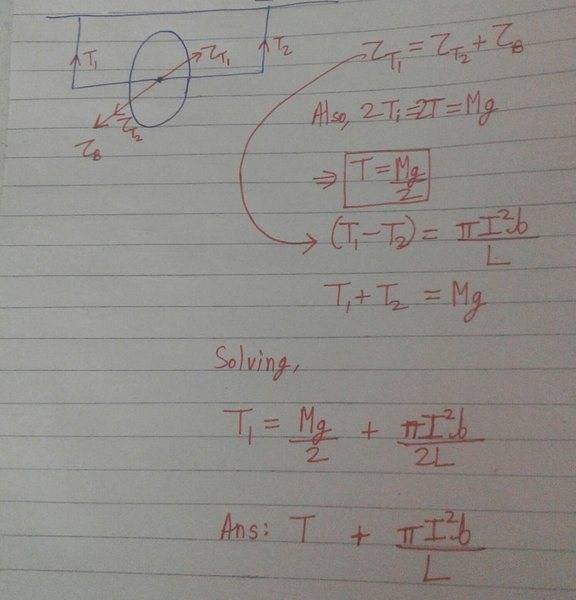 T₁ τ_T₁ T₂
τ_T₂
τ_B
τ_T₁ = τ_T₂ + τ_B
Also, 2Tᵢ=2T = Mg
⇒ T = Mg/2
(T₁-T₂) = πI²b/L
T₁+T₂ = Mg
Solving,
T₁ = Mg/2 + πI²b/2L
Ans: T + πI²b/L